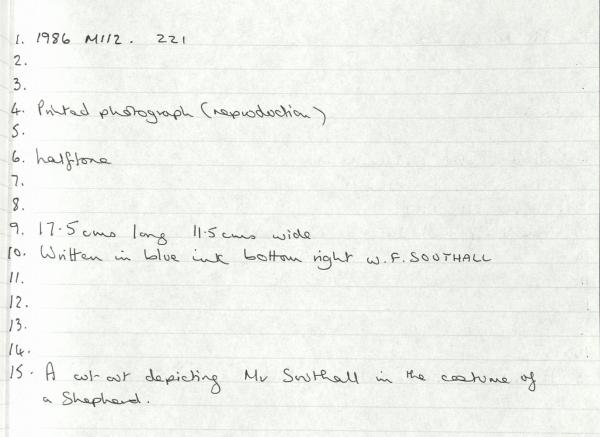 1. 1986 M112. 221
2.
3.
4. Printed photograph (reproduction)
5.
6. halftone
7.
8.
9. 17.5 cms long 11.5 cms wide
10. Written in blue ink bottom right W.F. SOUTHALL
11.
12.
13.
14.
15. A cut-out depicting Mr Southall in the costume of
a Shepherd.